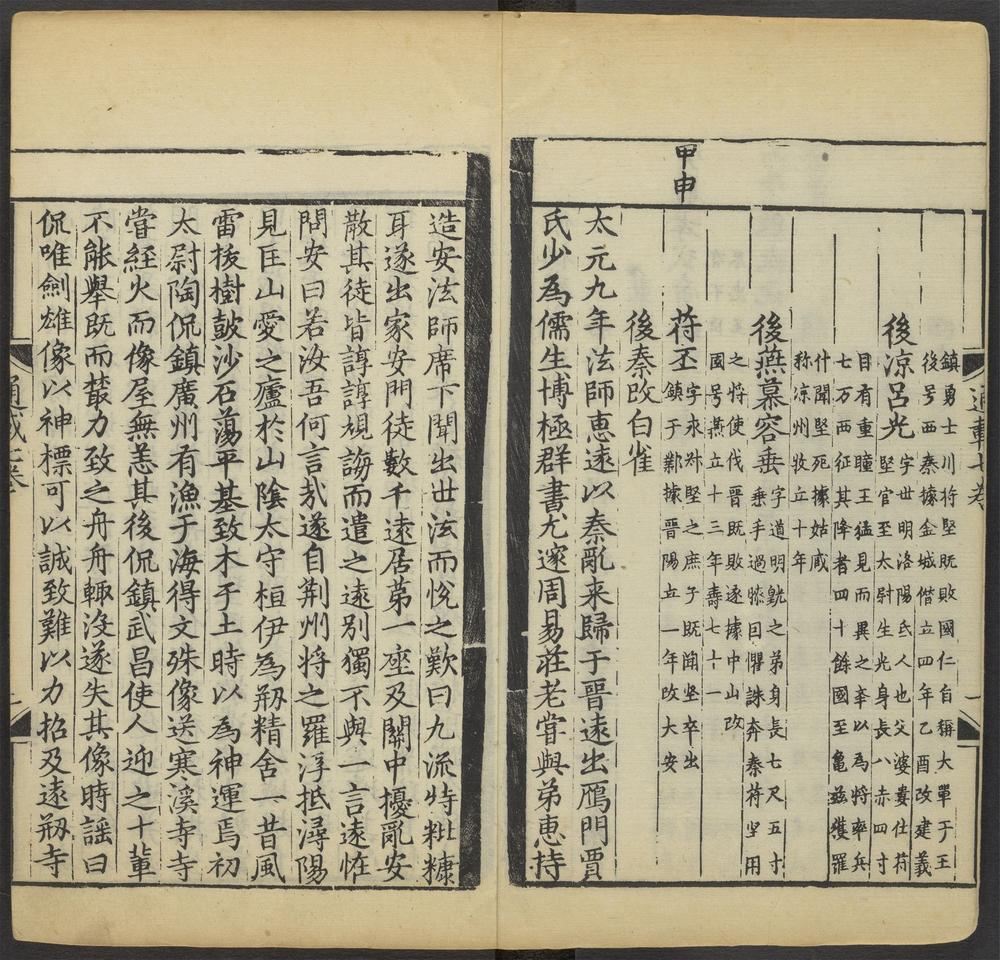 通載七卷
一
鎮勇士川將堅既敗國仁自稱大單于王
後号西秦據金城僣立四年乙酉改建義
後凉呂光字世明洛陽氐人也父婆婁仕苻
堅官至太尉生光身長八赤四寸
目有重瞳王猛見而異之李以為將率兵
七万西征其降者四十餘國至龜兹獲羅
什聞堅死據姑臧
称凉州牧立十年
後燕慕容垂字道明皝之弟身長七尺五寸
垂手過膝因懼誅奔秦苻坚用
之將使伐晉既敗遂據中山改
國号燕立十三年壽七十一
苻丕字永叔堅之庶子既聞坚卒出
鎮于鄴據晉陽立一年改大安
甲申
後秦改白雀
太元九年法師惠遠以秦亂来歸于晉遠出鴈門賈
氏少為儒生博極群書尤邃周易莊老甞與弟惠持
造安法師席下聞出世法而悅之歎曰九流特粃糠
耳遂出家安門徒數千遠居苐一座及關中擾亂安
散其徒皆諄諄規誨而遣之遠別獨不與一言遠恠
問安曰若汝吾何言哉遂自荆州將之羅浮抵潯陽
見匡山愛之廬於山陰太守桓伊為剏精舍一昔風
雷拔樹皷沙石蕩平基致木于土時以為神運焉初
太尉陶侃鎮廣州有漁于海得文殊像送寒溪寺寺
甞經火而像屋無恙其後侃鎮武昌使人迎之十輩
不能舉既而藂力致之舟舟輙沒遂失其像時謡曰
侃唯劍雄像以神標可以誠致難以力招及遠剏寺